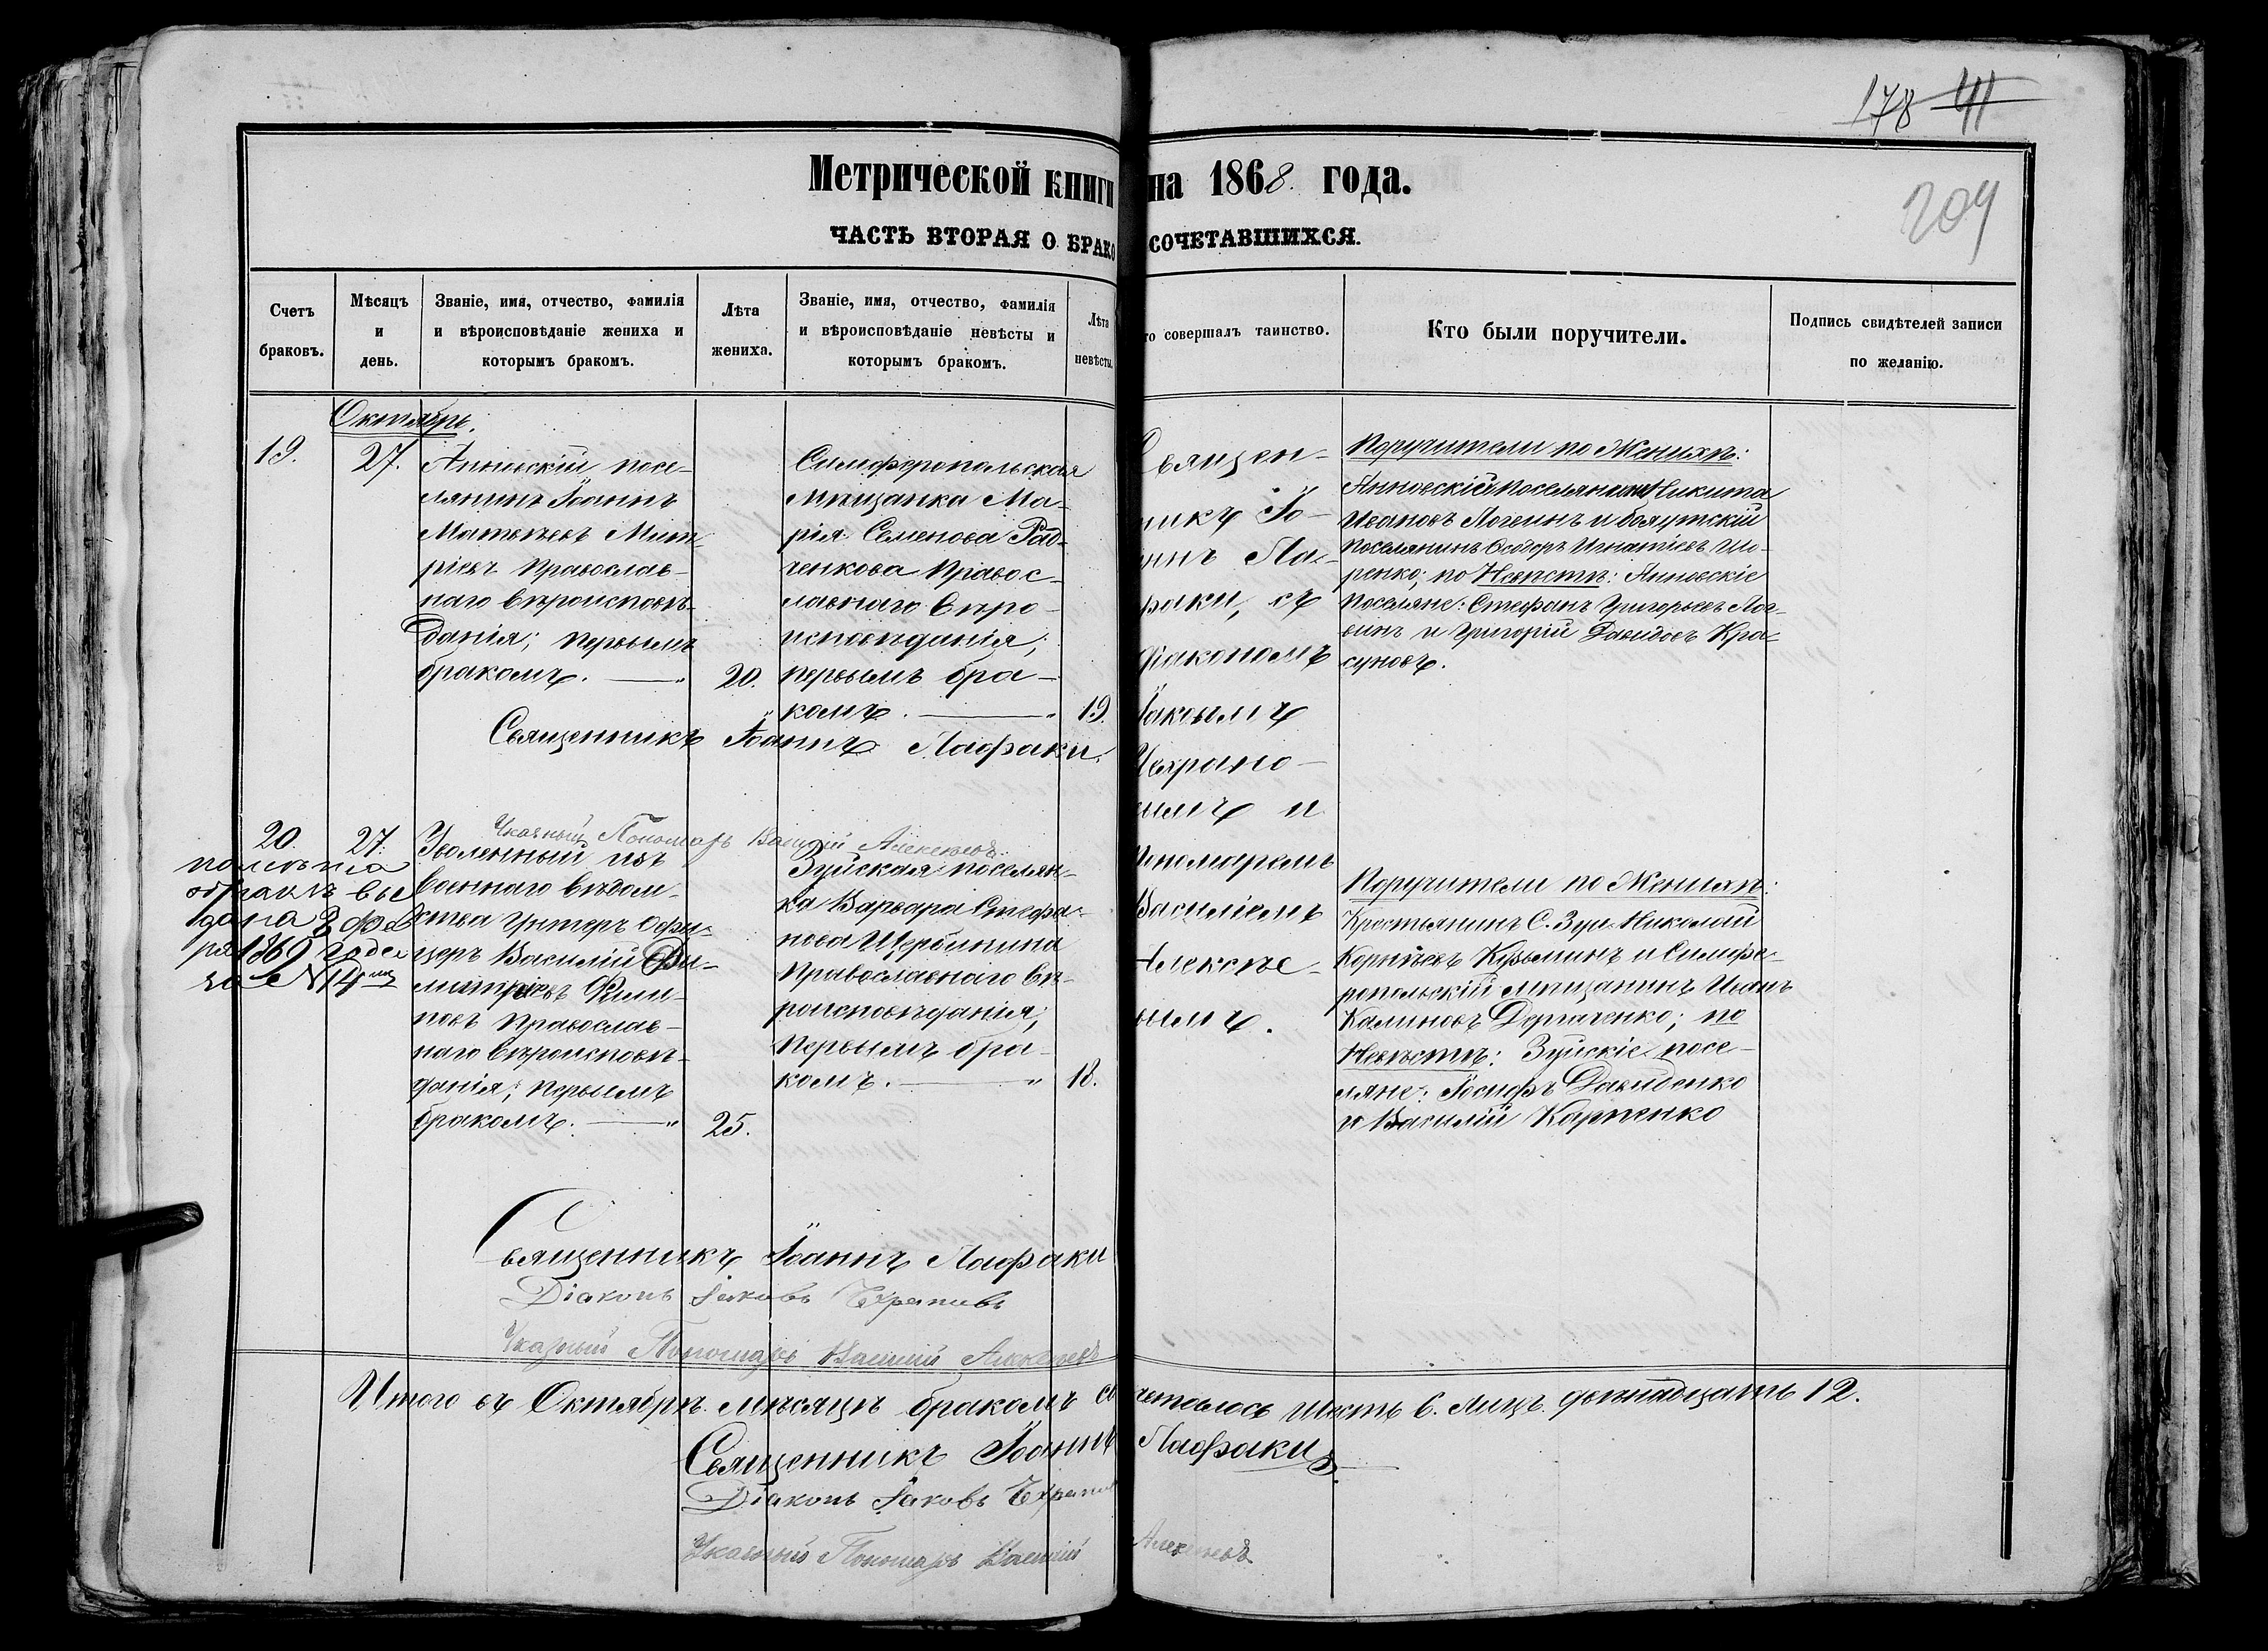 178 41
209
Метрической книги на 1868. года.
ЧАСТЬ ВТОРАЯ О БРАКОСОЧЕТАВШИХСЯ.
Счетъ браковъ.
Мѣсяцъ и день.
Званіе, имя, отчество, фамилія и вѣроисповѣданіе жениха и которымъ бракомъ.
Лѣта жениха.
Званіе, имя, отчество, фамилія и вѣроисповѣданіе невѣсты и которымъ бракомъ.
Лѣта невѣсты.
то совершалъ таинство.
Кто были поручители.
Подпись свидѣтелей записи по желанію.
Октябрь.
19.
27.
Аннскій посе-
лянинъ Іоаннъ
Матвѣевъ Мит-
ріевъ православ-
наго вѣроисповѣ-
данія; первымъ
бракомъ.
20.
Симферопольская
мѣщанка Ма-
рія Семенова Рад-
ченкова правос-
лавнаго вѣро-
исповѣданія;
первымъ бра-
комъ.
19.
Священникъ Іоаннъ Лафаки.
Указный Пономарь Василій Алексѣевъ
Священ-
никъ Іо-
аннъ Ла-
факи, съ
діакономъ
Іаковымъ
Чепрано-
вымъ и
пономаремъ
Василіемъ
Алексѣе-
вымъ.
Поручители по Женихѣ:
Анновскій поселянинъ Никита
Ивановъ Логвинъ и бояутскій
поселянинъ Феодоръ Игнатіевъ Що-
ренко; по Невѣстѣ: Анновскіе
поселяне: Стефанъ Григорьевъ Лог-
винъ и Григорій Давидовъ Кра-
суновъ.
20.
27.
выдана
1869 года
за № 14
Уволенный изъ
военнаго вѣдом-
ства Унтеръ Офи-
церъ Василій Ди-
митріевъ Фили-
повъ православ-
наго вѣроисповѣ-
данія; первымъ
бракомъ.
25.
Зуйская поселян-
ка Варвара Стефа-
нова Щербинина
православнаго вѣ-
роисповѣданія;
первымъ бра-
комъ.
18.
Поручители по Женихѣ:
Крестьянинъ С. Зуи Николай
Корнѣевъ Кузьминъ и Симфе-
ропольскій мѣщанинъ Иванъ
Калиновъ Дергаченко; по
Невѣстѣ: Зуйскіе посе-
ляне: Іосифъ Давиденко
и Василій Карпенко
Священникъ Іоаннъ Лафаки
Діаконъ Іаковъ Чепрановъ
Указный Пономарь Василій Алексѣевъ
Итого въ Октябрѣ мѣсяцѣ бракомъ сочеталось шесть 6. лицъ двѣнадцать 12.
Священникъ Іоаннъ Лафаки
Діаконъ Іаковъ Чепрановъ
Указный Пономарь Василій Алексѣевъ